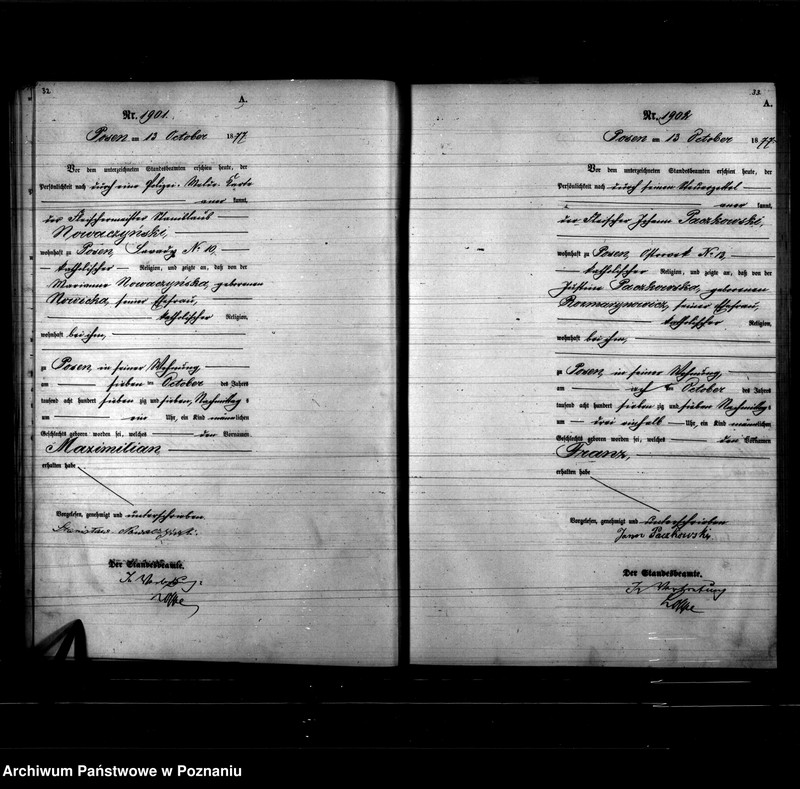 32.
A.
Nr. 1901.
Posen am 13 October 1877
Vor dem unterzeichneten Standesbeamten erschien heute, der
Persönlichkeit nach durch eine Polizei-Melde-Karte
aner kannt,
der Fleischermeister Stanislaus
Nowaczyński,
wohnhaft zu Posen, No 10,
katholischer Religion, und zeigte an, daß von der
Marianna Nowaczyńska, geborenen
Nowicka, seiner Ehefrau,
katholischer Religion,
wohnhaft bei ihm,
zu Posen, in seiner Wohnung,
am sieben ten October des Jahres
tausend acht hundert sieben zig und sieben, Nachmittags
um ein Uhr, ein Kind männlichen
Geschlechts geboren worden sei, welches den Vornamen
Maximilian
erhalten habe
Vorgelesen, genehmigt und unterschrieben
Der Standesbeamte.
In Vertretung:
33.
A.
Nr. 1902
Posen am 13 October 1877
Vor dem unterzeichneten Standesbeamten erschien heute, der
Persönlichkeit nach durch seinen Steuerzettel
aner kannt,
der Fleischer Johann Paczkowski,
wohnhaft zu Posen, Ostrowek No
katholischer Religion, und zeigte an, daß von der
Paczkowska, geborenen
Rozmarynowicz, seiner Ehefrau,
katholischer Religion,
wohnhaft bei ihm,
zu Posen, in seiner Wohnung,
am ach ten October des Jahres
tausend acht hundert sieben zig und sieben Nachmittags
um drei einhalb Uhr, ein Kind männlichen
Geschlechts geboren worden sei, welches den Vornamen
Franz,
erhalten habe
Vorgelesen, genehmigt und unterschrieben
Paczkowski
Der Standesbeamte.
In Vertretung
Archiwum Państwowe w Poznaniu